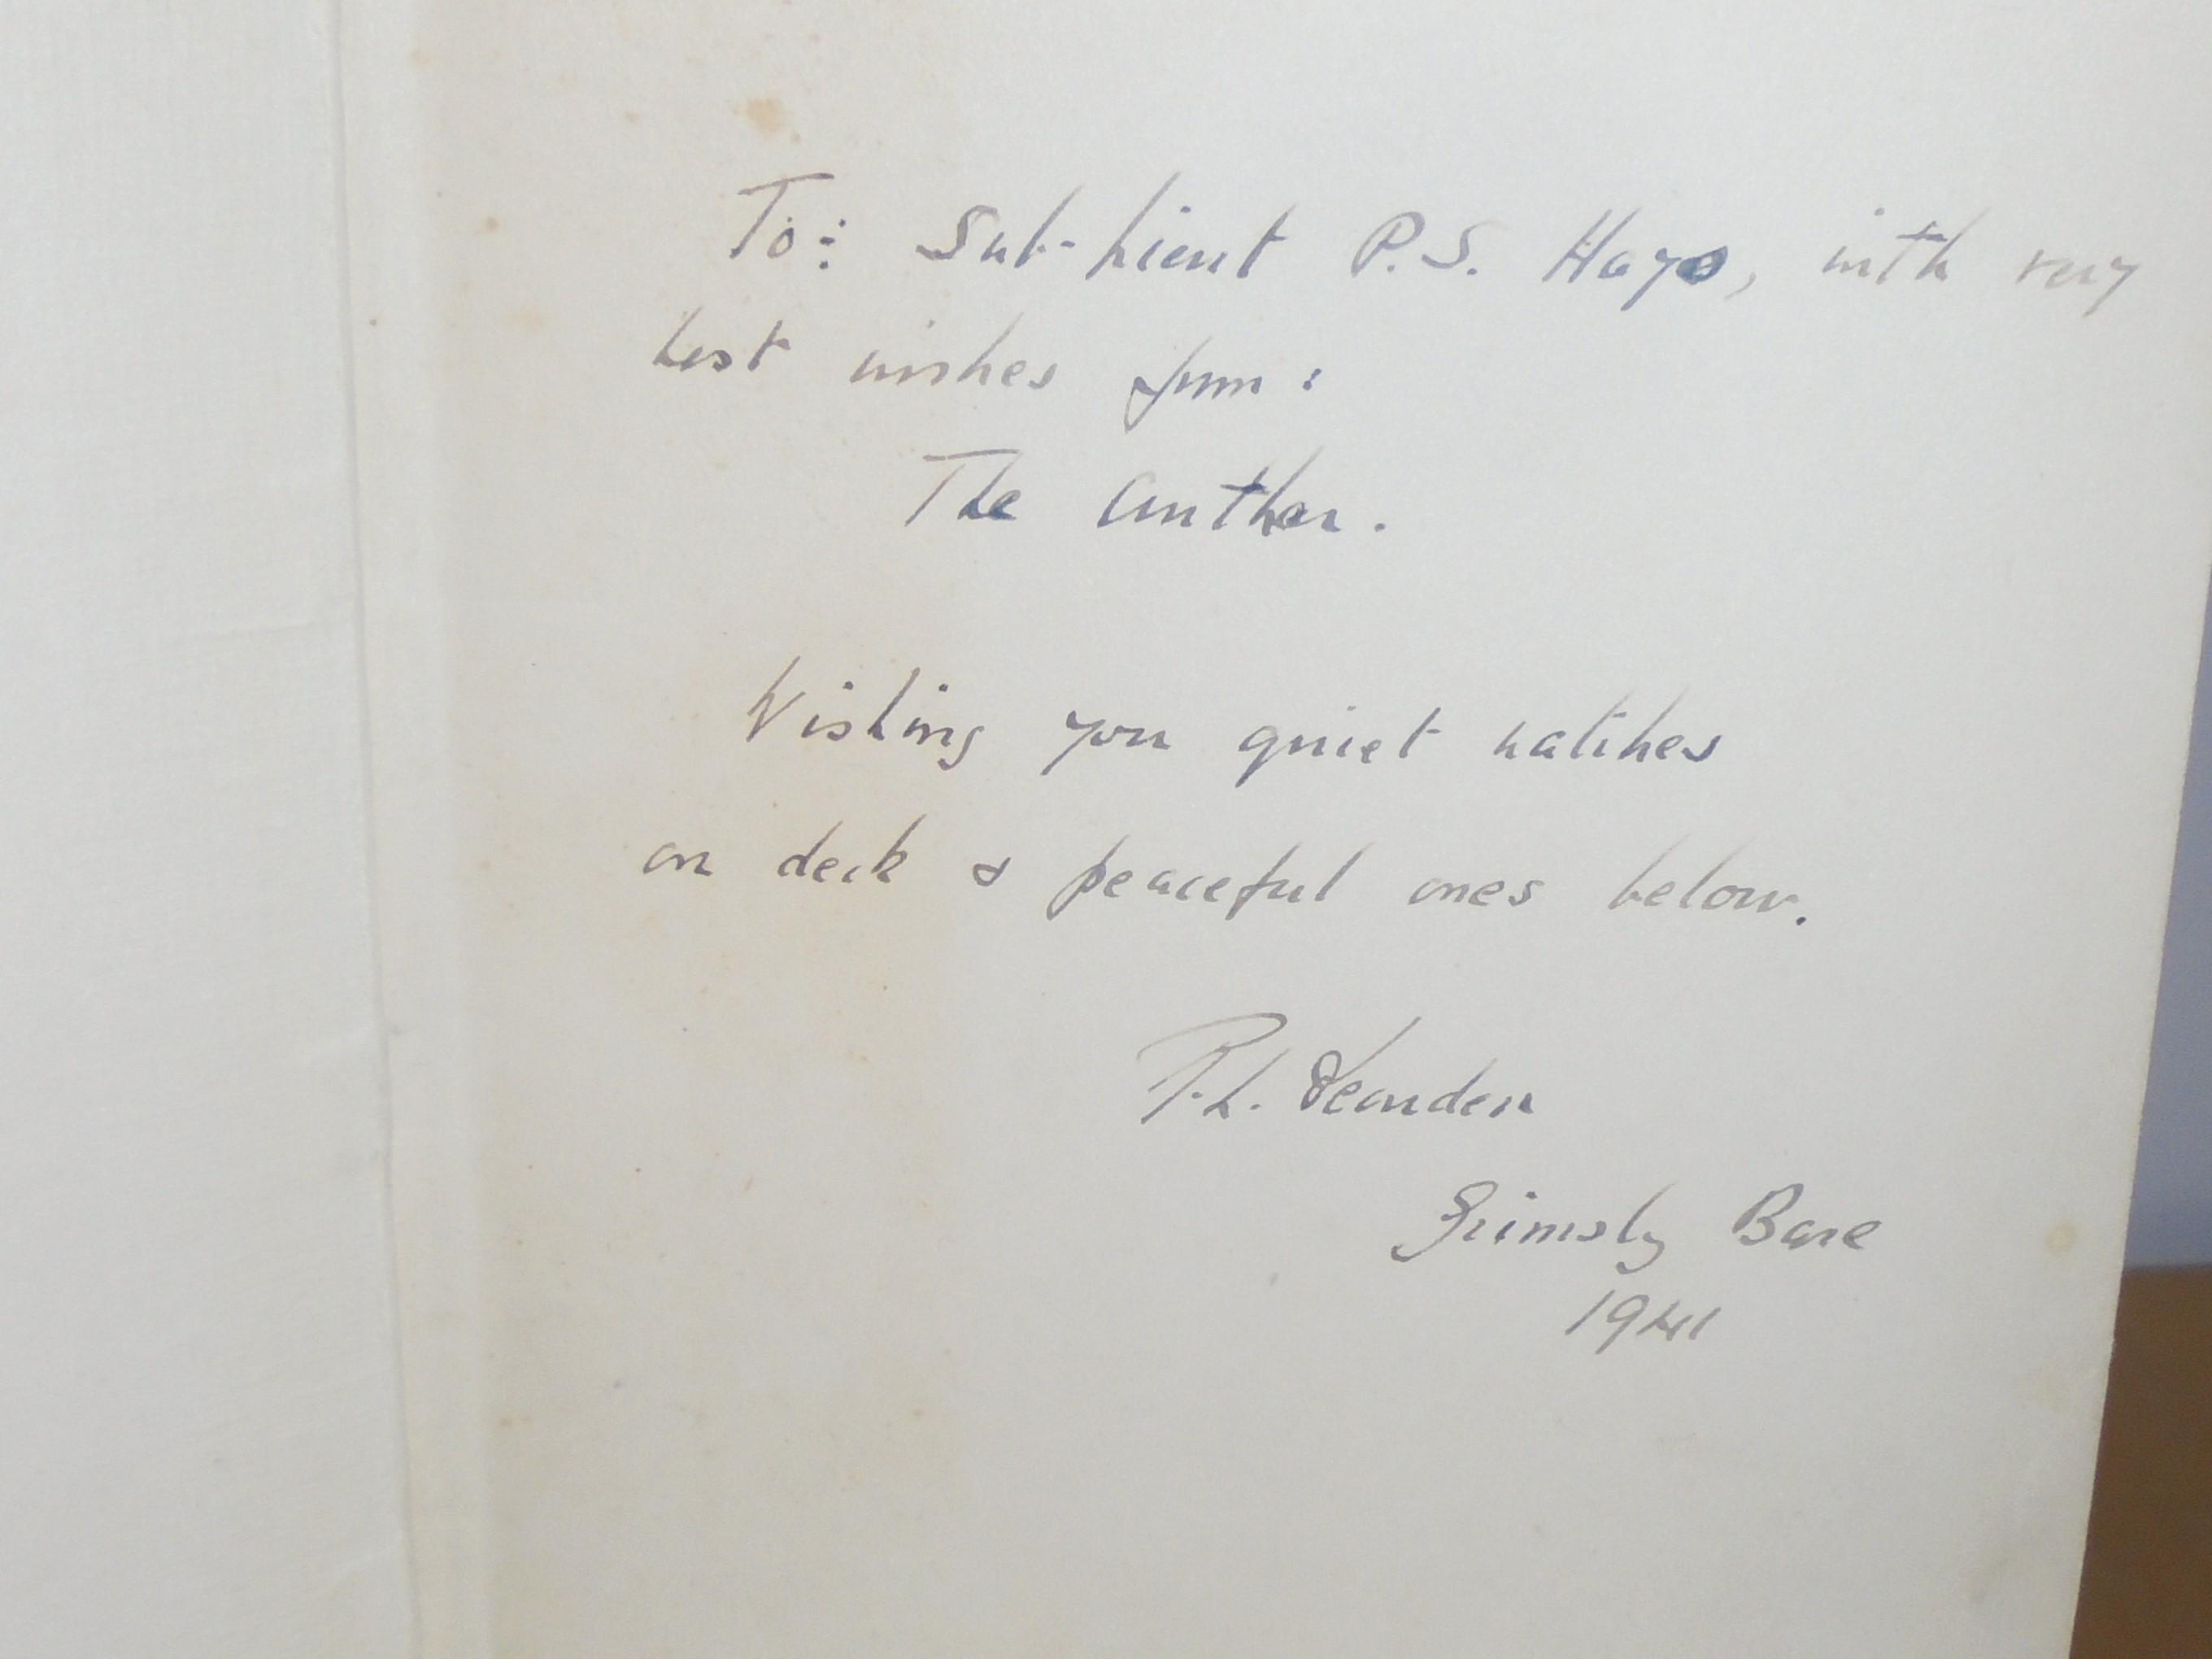 To: Sub-Lieut P.S. Hays, with very
best wishes from:
The Author.
Wishing you quiet watches
on deck & peaceful ones below.
R.L. Dearden
Grimsby Base
1941